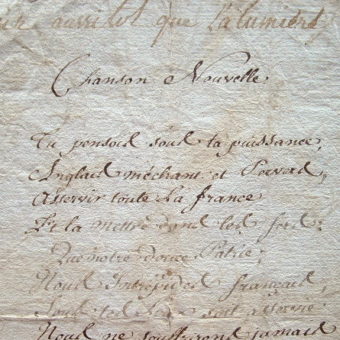 aussitot que la lumiere
Chanson Nouvelle
Tu pensois sous ta puissance,
Anglais méchant et Pervers,
Asservir toute la france
Et la mettre dans tes fers:
Que notre douce Patrie,
Nous Intrépides français,
Sous tes Loix soit
Nous ne souffrirons jamais